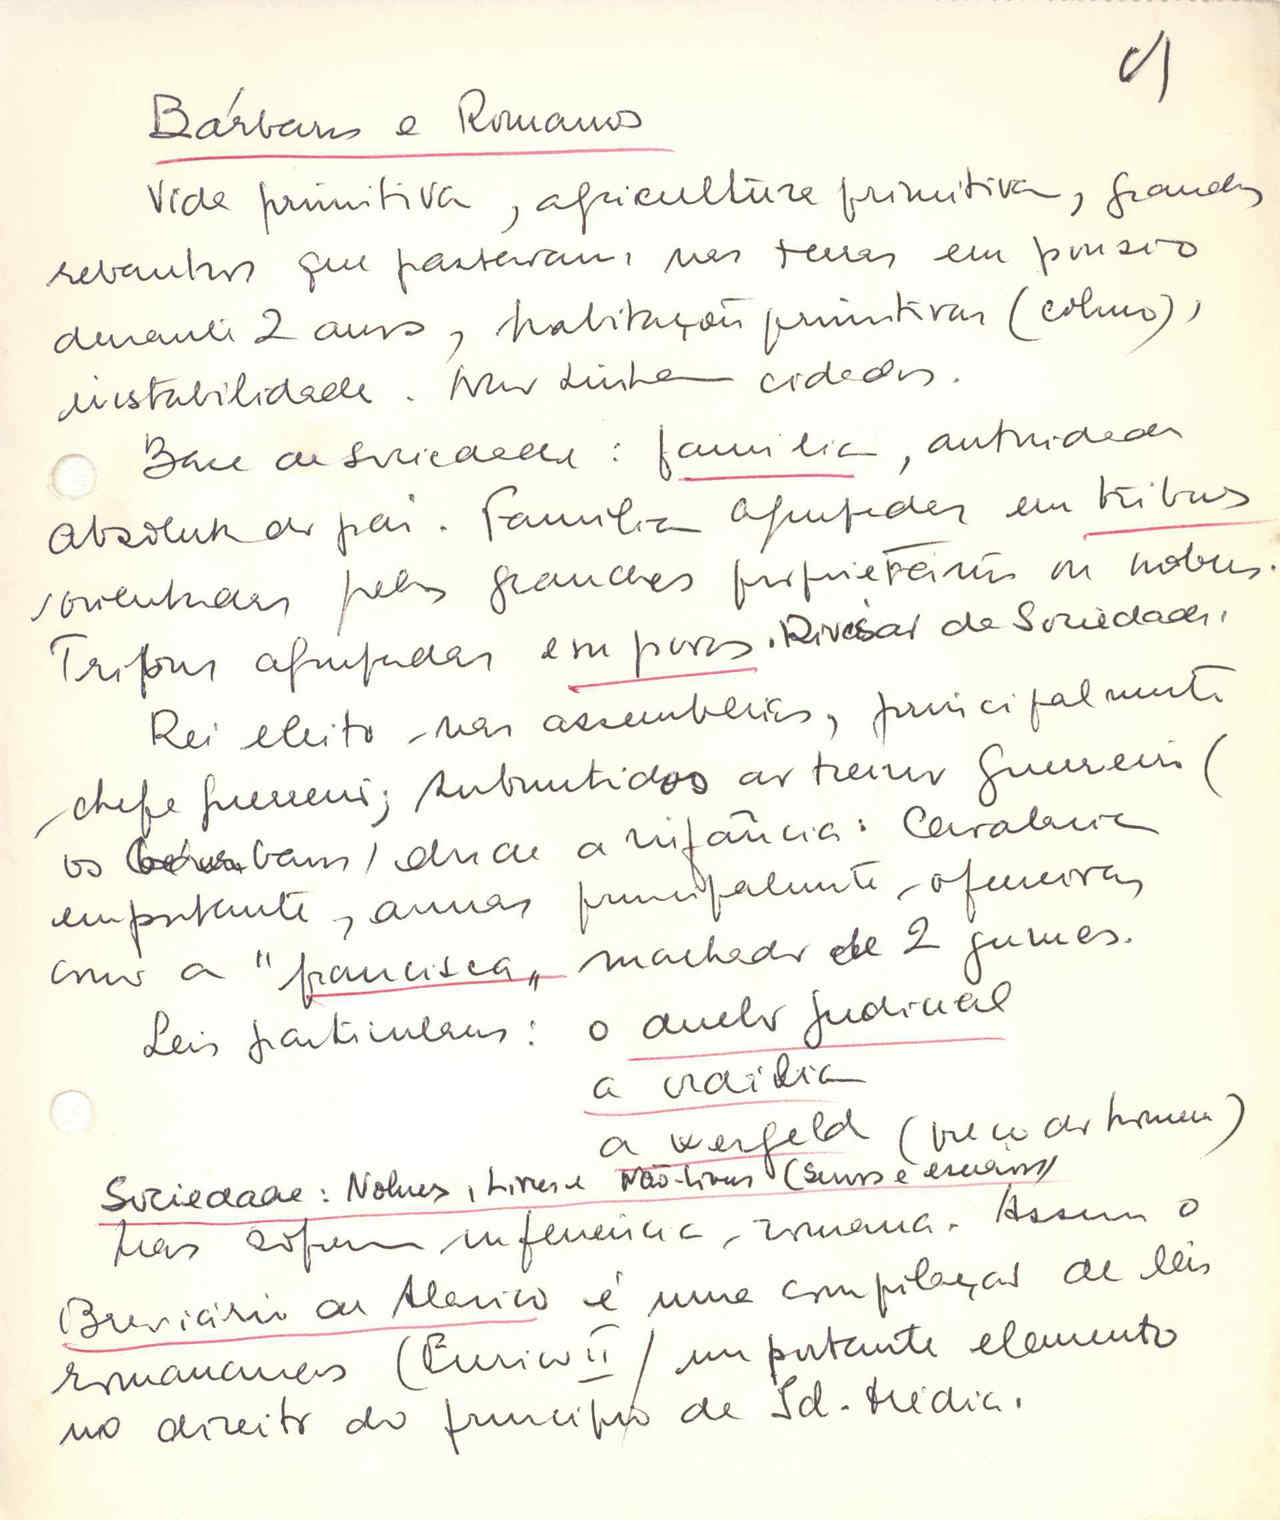 Bárbaros e Romanos
Vida primitiva, agricultura primitiva, grandes
rebanhos que pastavam nas terras em pousio
durante 2 anos, habitação primitivas (colmo),
instabilidade. Não tinham cidades.
Base da sociedade: família, autoridade
absoluta do pai. Família agrupadas em tribus
orientadas pelos grandes proprietários ou nobres.
Tribus agrupadas em povos. Divisão da Sociedade.
Rei eleito nas assembleias, principalmente
chefe guerreiro; submetidos ao treino guerreiro (
os bárbaros) desde a infância. Cavalaria
importante, armas principalmente ofensivas
como a "francisca" machado de 2 gumes.
Leis particulares: o duelo judicial
a
a wergeld (preço do homem)
Sociedade: Nobres, Livres e Não-livres (servos e escravos)
Mas sofrem influência romana. Assim o
Breviário de Alarico é uma compilação de leis
romanas (Eurico II) importante elemento
no direito do princípio da Id. Média.